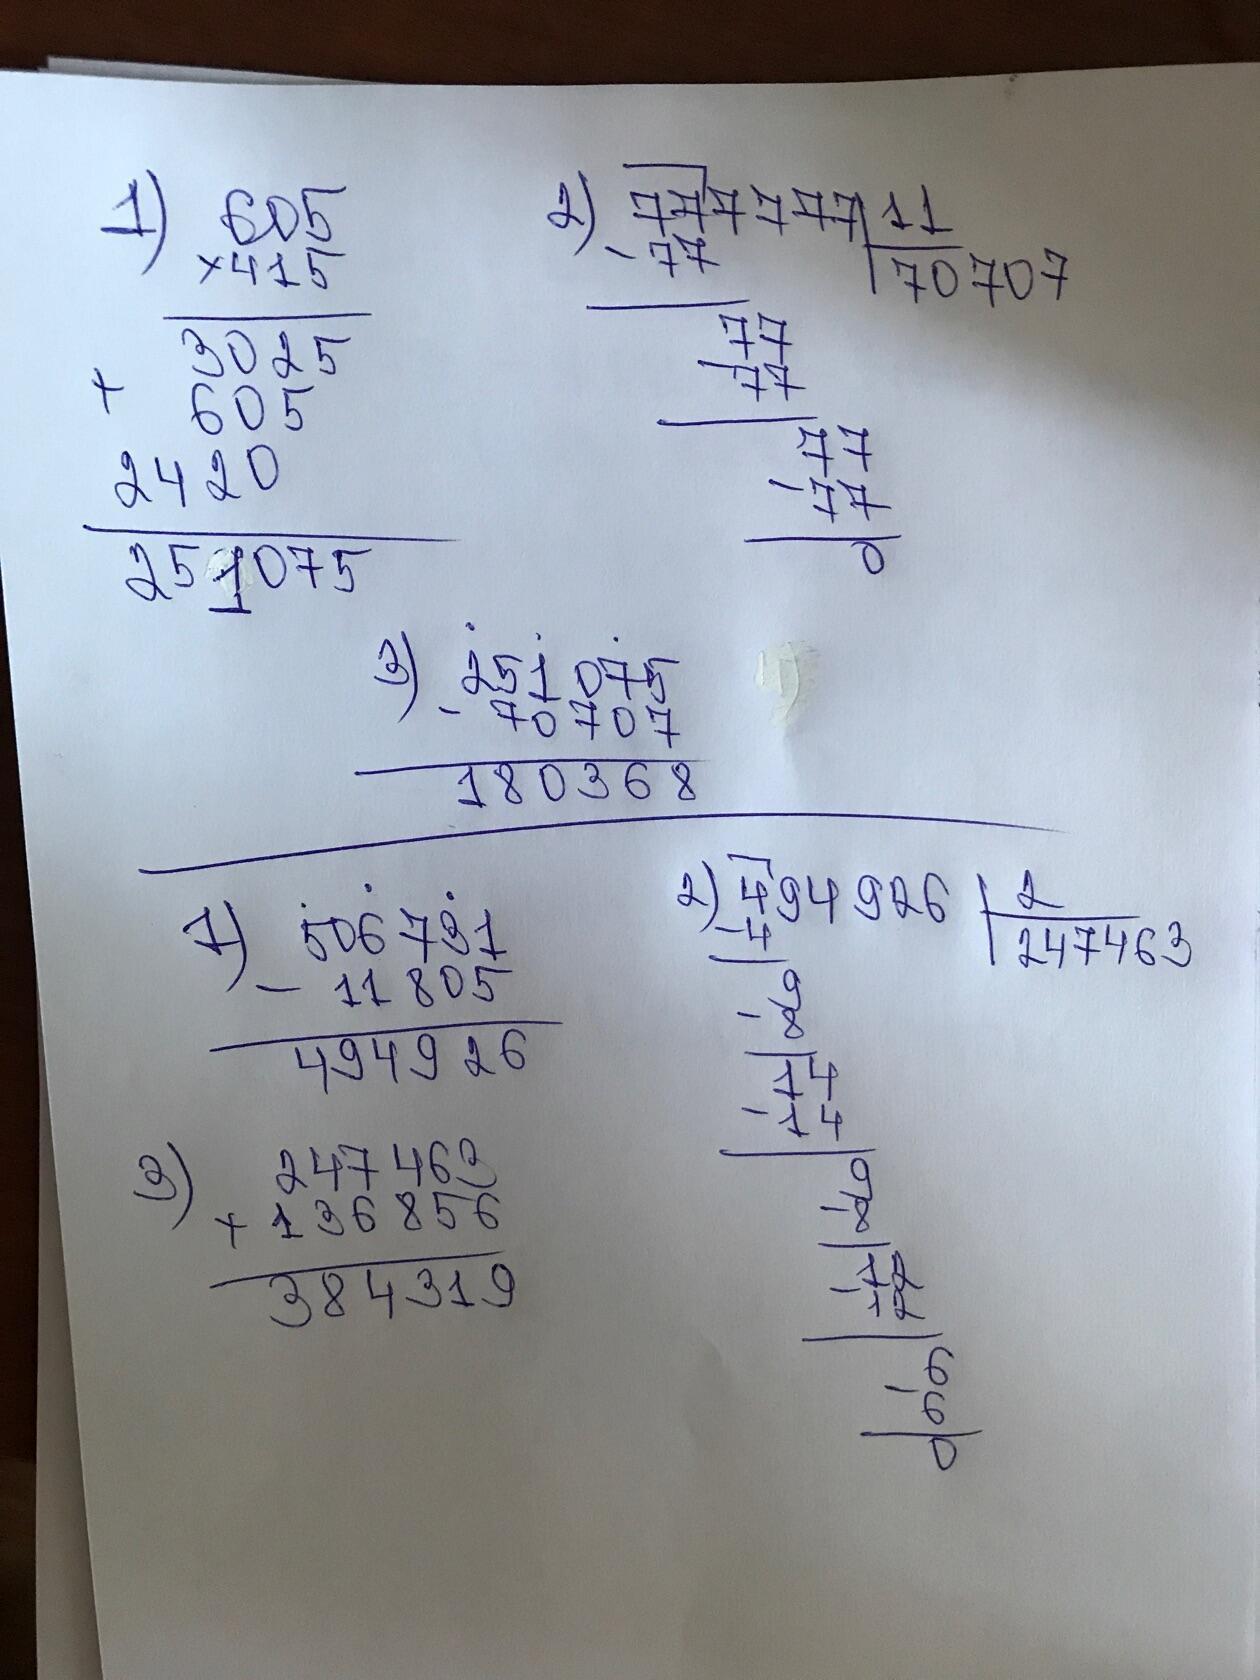 1) 605
×415
3025
+ 605
2420
251075
2) 777777 11
- 77 70707
77
- 77
77
- 77
0
3) 251 075
- 70 707
180368
1) 506 731
- 11 805
494926
2) 494926 2
- 4 247463
9
- 8
14
- 14
9
- 8
12
- 12
6
- 6
0
3) 247 463
+ 136 856
384319